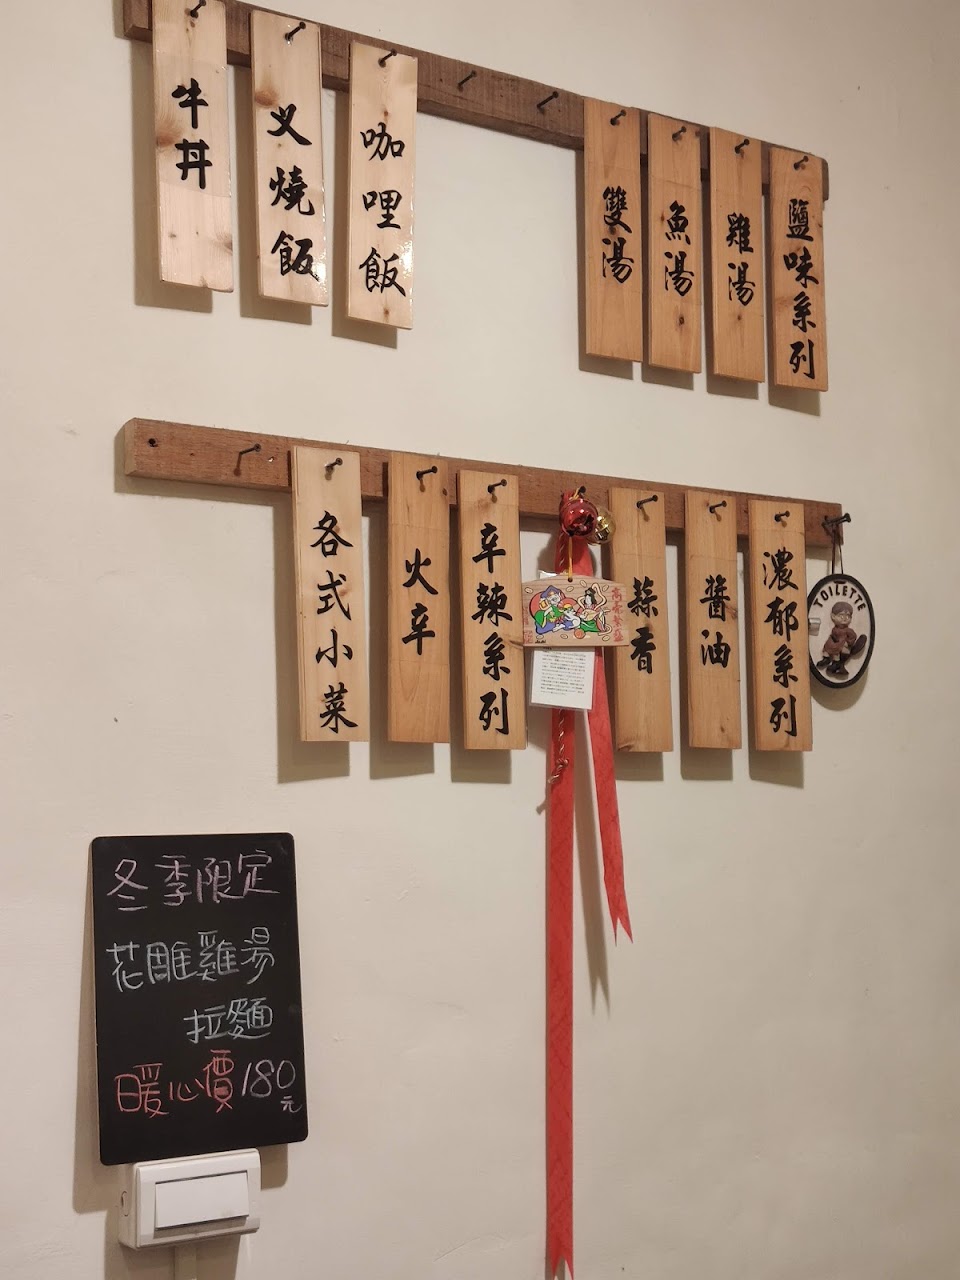 鹽味系列
雞湯
魚湯
雙湯
咖哩飯
叉燒飯
牛丼
濃郁系列
醬油
蒜香
辛辣系列
火辛
各式小菜
TOILETTE
冬季限定
花雕雞湯
拉麵
暖心價180元